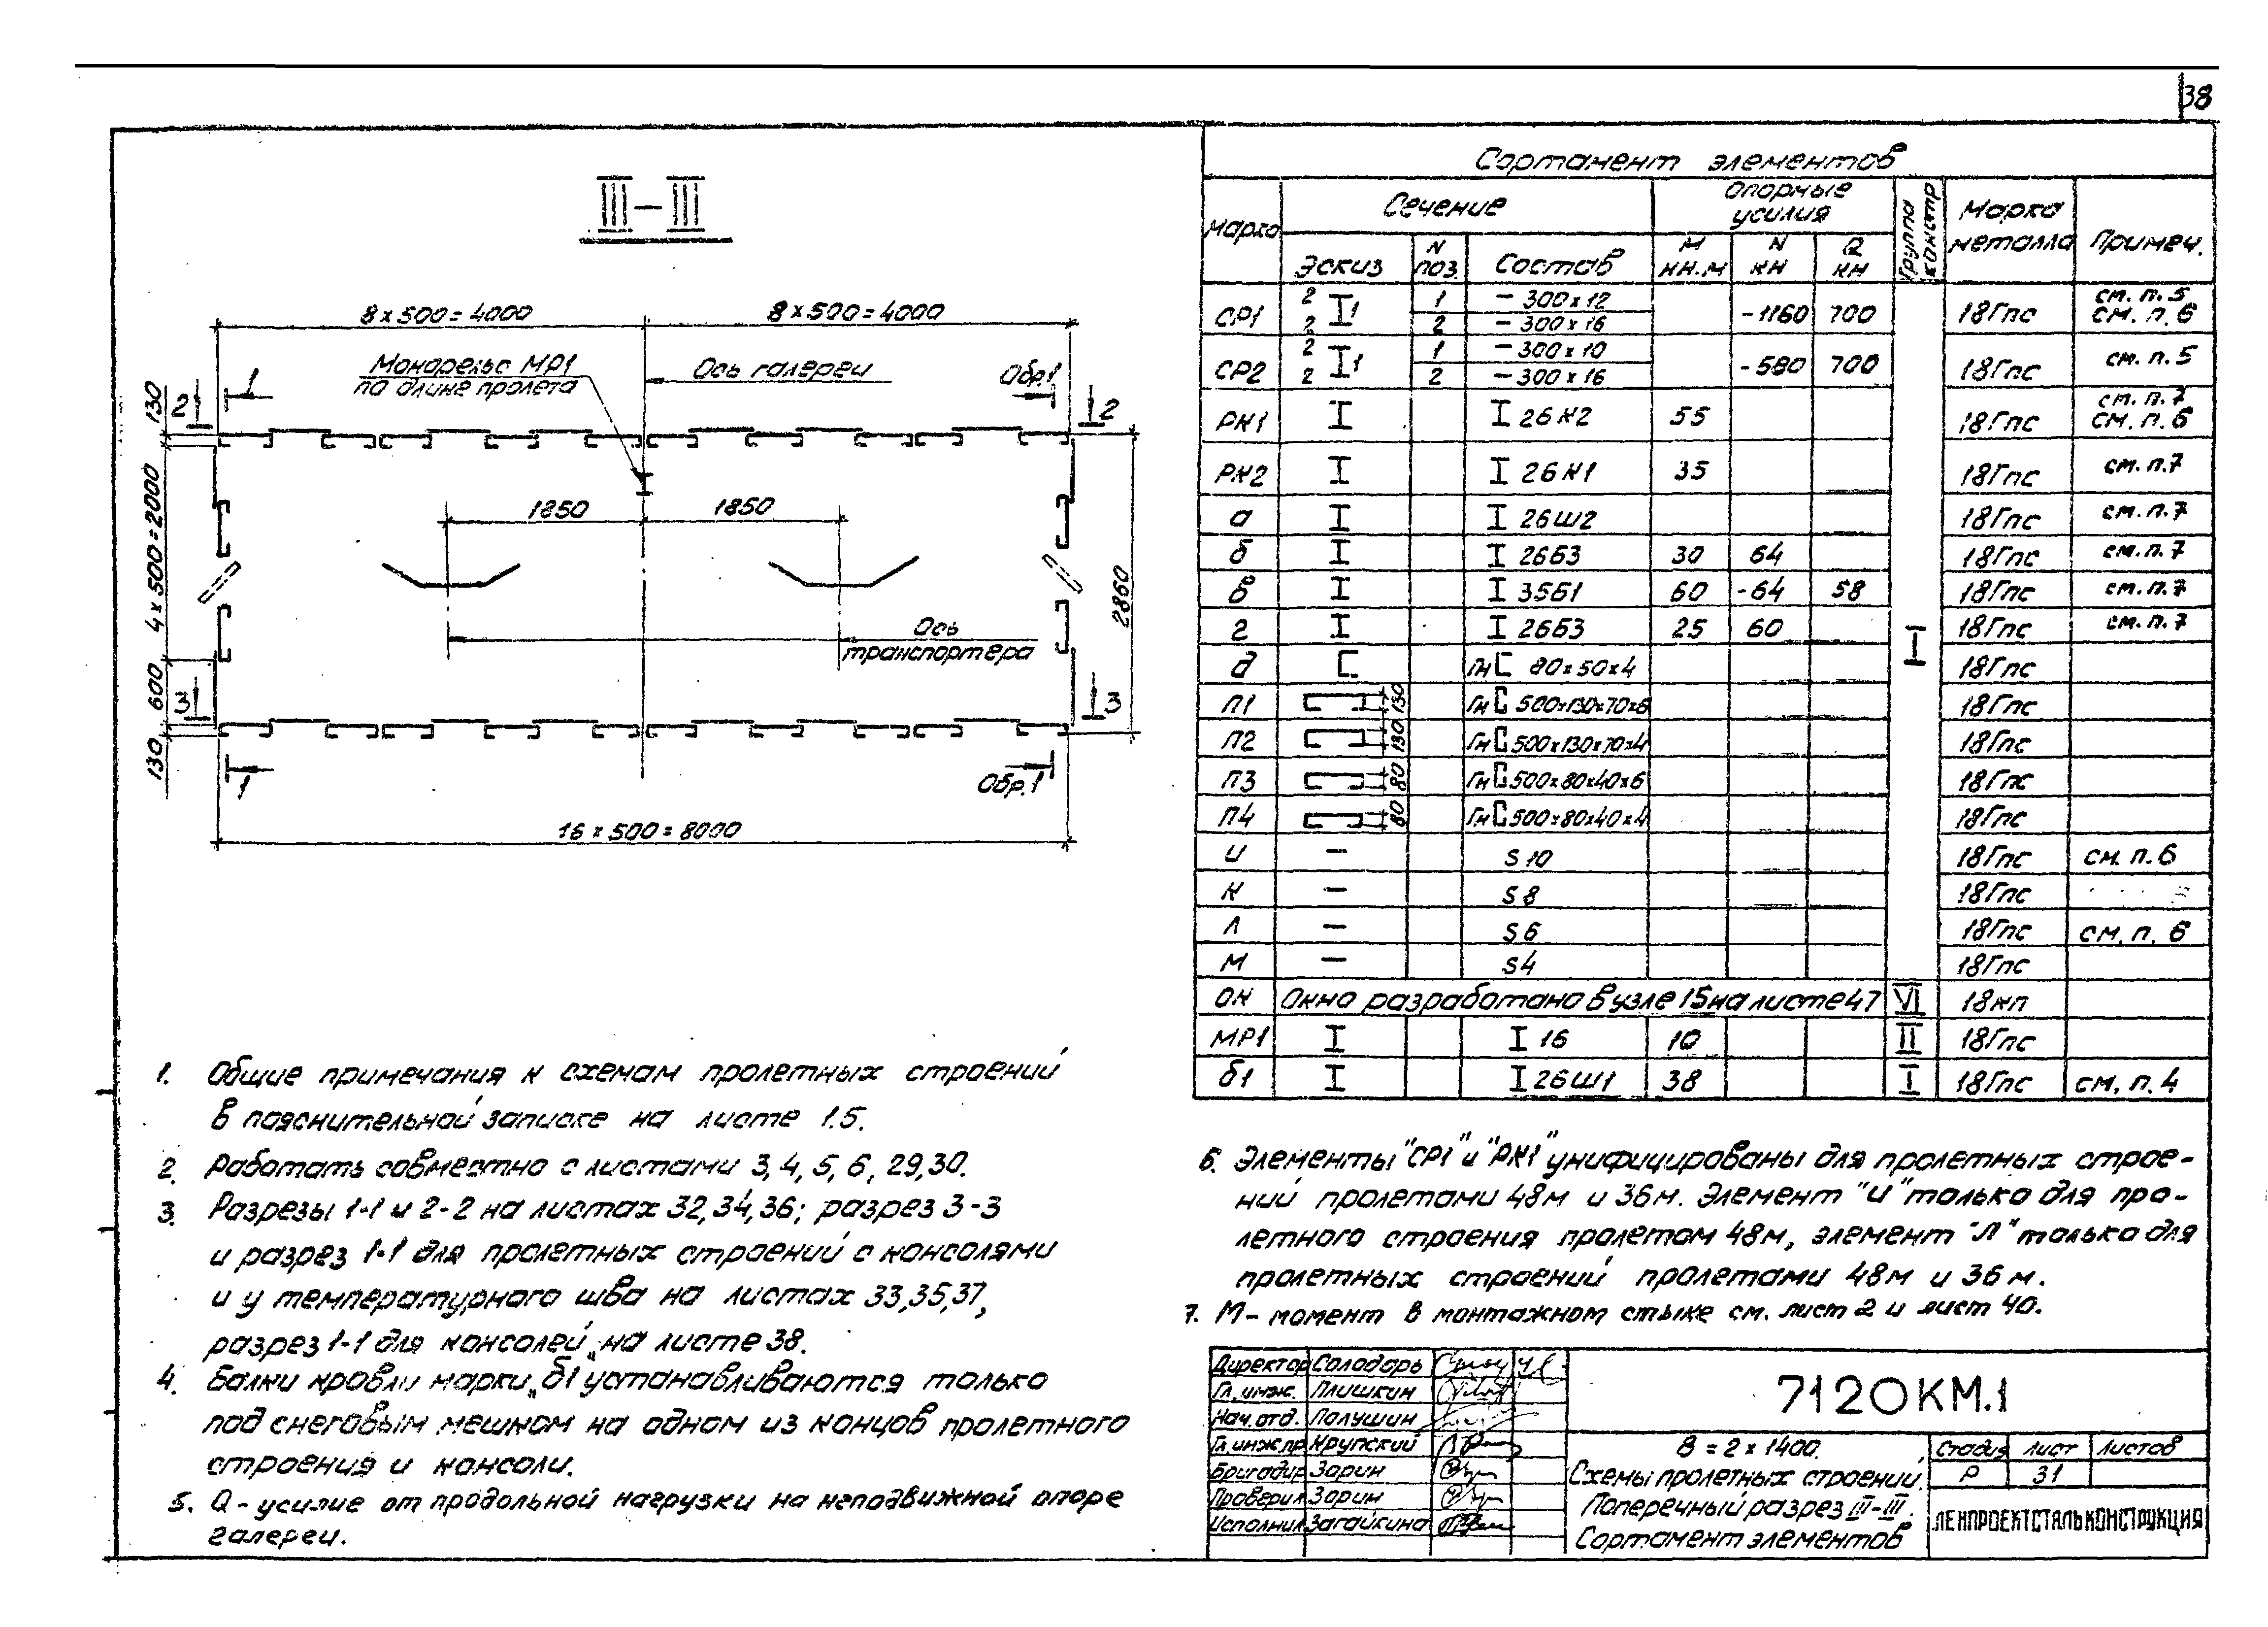 38
III-III
8×500=4000
8×500=4000
Монорельс МР1
по длине пролета
Ось галереи
1
Обр.1
2
2
130
4×500=2000
600
130
2860
1850
1850
Ось
транспортера
3
3
1
Обр.1
16×500=8000
Сортамент элементов
Марка
Сечение
Опорные усилия
Группа констр
Марка металла
Примеч.
Эскиз
N поз.
Состав
М кн.м
N кн
Q кн
СР1 2 2 1 1 – 300×12 2 – 300×16 -1160 700 18Гпс см. п. 5 см. п. 6
СР2 2 2 1 1 – 300×10 2 – 300×16 -580 700 18Гпс см. п. 5
РК1 I I 26К2 55 18Гпс см. п. 7 см. п. 6
РК2 I I 26К1 35 18Гпс см. п.7
а I I 26Ш2 18Гпс см. п.7
б I I 26Б3 30 64 18Гпс см. п. 7
в I I 35Б1 60 -64 58 18Гпс см. п.7
г I I 26Б3 25 60 I 18Гпс см. п.7
д Гн[ 80×50×4 18Гпс
П1 130 Гн[ 500×130×70×6 18Гпс
П2 130 Гн[ 500×130×70×4 18Гпс
П3 80 Гн[ 500×80×40×6 18Гпс
П4 80 Гн[ 500×80×40×4 18Гпс
И – S10 18Гпс см. п. 6
К – S8 18Гпс
Л – S6 18Гпс см. п. 6
М – S4 18Гпс
ОК Окно разработано в узле 15 на листе 47 VI 18кп
МР1 I I 16 10 II 18Гпс
б1 I I 26Ш1 38 I 18Гпс см. п. 4
1. Общие примечания к схемам пролетных строений
в пояснительной записке на листе 1.5.
2. Работать совместно с листами 3, 4, 5, 6, 29, 30.
3. Разрезы 1-1 и 2-2 на листах 32, 34, 36; разрез 3-3
и разрез 1-1 для пролетных строений с консолями
и у температурного шва на листах 33, 35, 37,
разрез 1-1 для консолей на листе 38.
4. Балки кровли марки „б1" устанавливаются только
под снеговым мешком на одном из концов пролетного
строения и консоли.
5. Q - усилие от продольной нагрузки на неподвижной опоре
галереи.
6. Элементы "СР1" и "РК1" унифицированы для пролетных строе-
ний пролетами 48м и 36м. Элемент "И" только для про-
летного строения пролетом 48м, элемент "Л" только для
пролетных строений пролетами 48м и 36м.
7. М - момент в монтажном стыке см. лист 2 и лист 40.
Директор Солодарь
Гл. инж. Плишкин
Нач. отд. Полушин
Гл.инж.пр Крупский
Бригадир Зорин
Проверил Зорин
Исполнил Загайкина
7120КМ.1
В = 2×1400.
Схемы пролетных строений.
Поперечный разрез III-III.
Сортамент элементов
Стадия Лист Листов
Р 31
ЛЕНПРОЕКТСТАЛЬКОНСТРУКЦИЯ